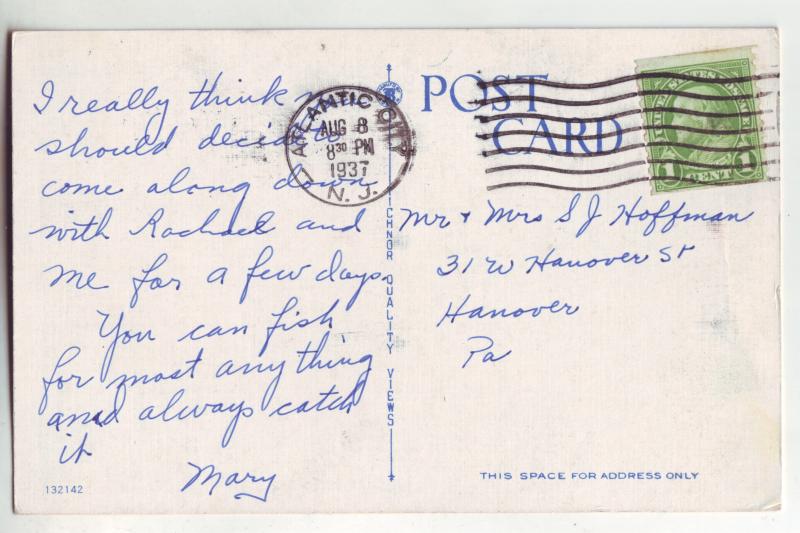 I really think
should decide
come along down
with Rachael and
me for a few days.
You can fish
for most anything
and always catch
it
Mary
132142
ATLANTIC CITY
AUG 8
8 30 PM
1937
N. J.
QUALITY VIEWS
POST
CARD
1 CENT 1
Mr + Mrs S J Hoffman
31 W Hanover St
Hanover
Pa
THIS SPACE FOR ADDRESS ONLY